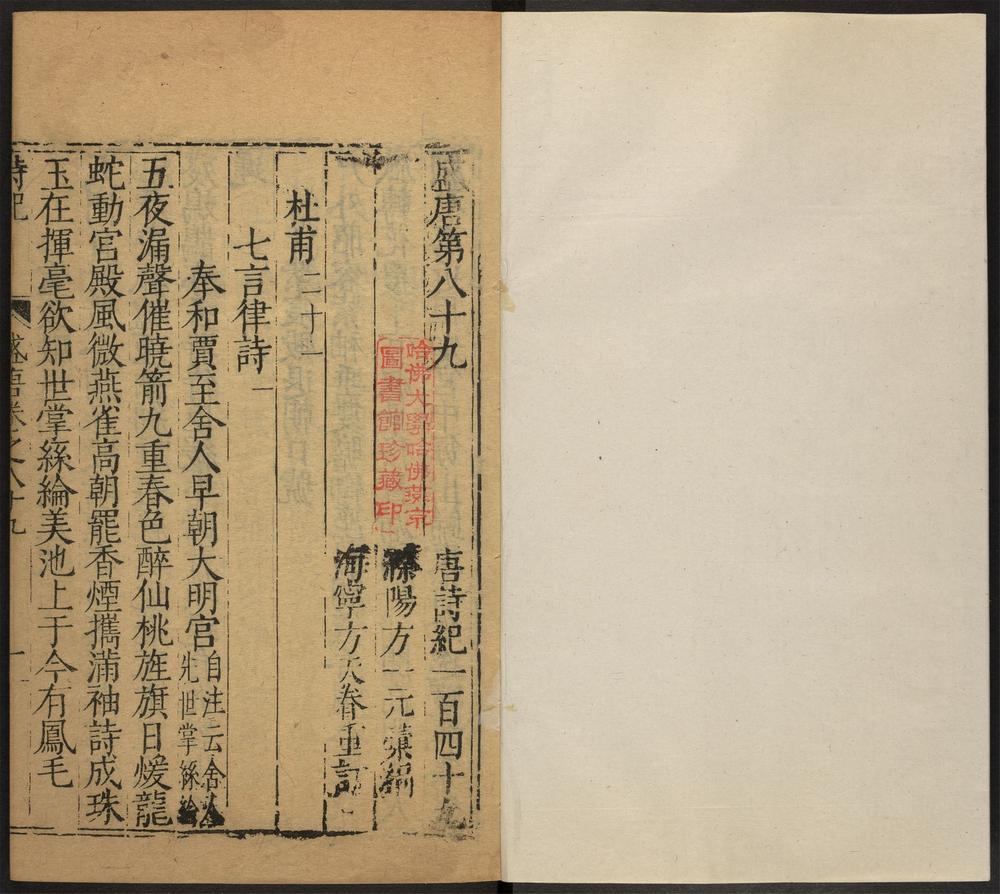 盛唐第八十九 唐詩紀一百四十九
陽方一元彙編
海寧方天眷重訂
哈佛大學哈佛燕京
圖書館珍藏印
杜甫二十一
七言律詩一
奉和賈至舍人早朝大明宮自注云舍人
先世掌絲綸
五夜漏聲催曉箭九重春色醉仙桃旌旗日煖龍
蛇動宮殿風微燕雀高朝罷香煙攜滿袖詩成珠
玉在揮毫欲知世掌絲綸美池上于今有鳳毛
詩紀 盛唐卷之八十九 一